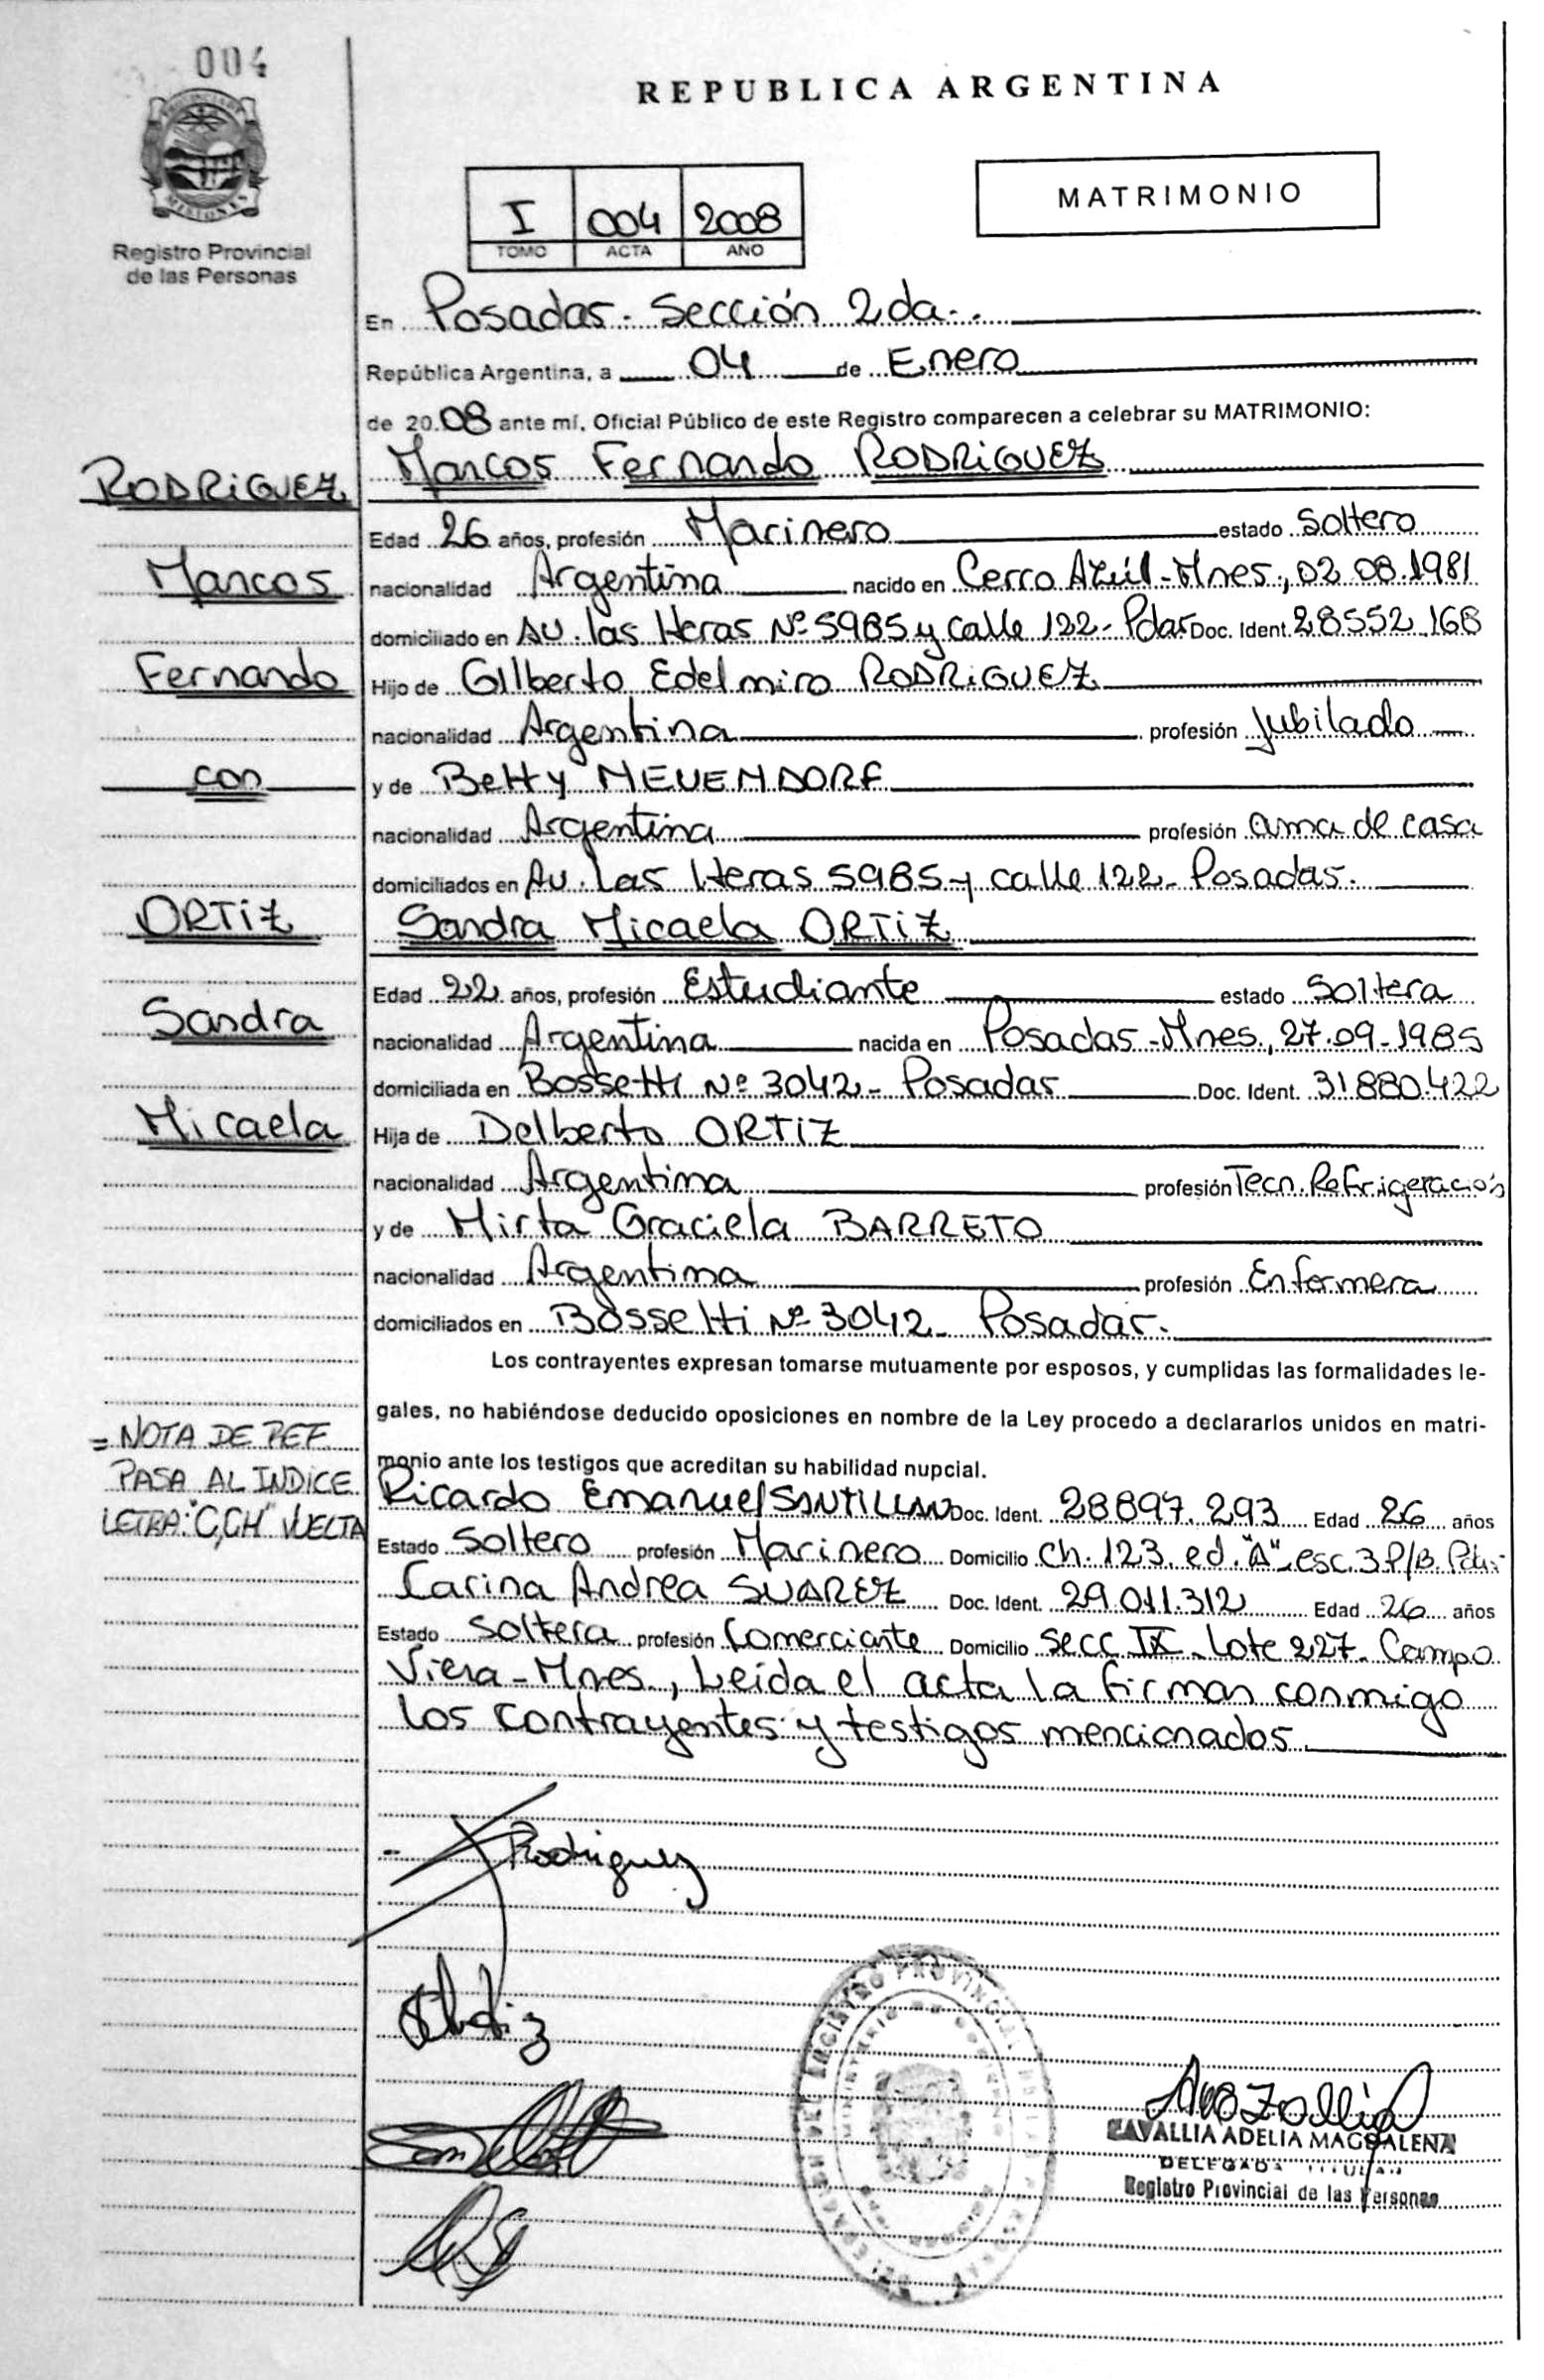 004
REPUBLICA ARGENTINA
MATRIMONIO
I 004 2008
TOMO ACTA AÑO
MISIONES
Registro Provincial
de las Personas
En Posadas - Sección 2da.-
República Argentina, a 04 de Enero
de 2008 ante mí, Oficial Público de este Registro comparecen a celebrar su MATRIMONIO:
RODRIGUEZ
Marcos Fernando RODRIGUEZ
Edad 26 años, profesión Marinero estado Soltero
Marcos
nacionalidad Argentina nacido en Cerro Azúl - Mnes, 02 08.1981
domiciliado en Av. las Heras Nº 5985 y calle 122 - Pdas Doc. Ident. 28552.168
Fernando
Hijo de Gilberto Edelmiro RODRIGUEZ
nacionalidad Argentina profesión Jubilado
con
y de Betty NEUENDORF
nacionalidad Argentina profesión ama de casa
domiciliados en Av. Las Heras 5985 y calle 122 - Posadas.
ORTIZ
Sandra Micaela ORTIZ
Edad 22 años, profesión Estudiante estado Soltera
Sandra
nacionalidad Argentina nacida en Posadas - Mnes, 27.09-1985
domiciliada en Bossetti Nº 3042 - Posadas Doc. Ident. 31880.422
Micaela
Hija de Delberto ORTIZ
nacionalidad Argentina profesión Tecn. Refrigeración
y de Mirta Graciela BARRETO
nacionalidad Argentina profesión Enfermera
domiciliados en Bossetti Nº 3042 - Posadas.
Los contrayentes expresan tomarse mutuamente por esposos, y cumplidas las formalidades le-
gales, no habiéndose deducido oposiciones en nombre de la Ley procedo a declararlos unidos en matri-
monio ante los testigos que acreditan su habilidad nupcial.
= NOTA DE REF
PASA AL INDICE
LETRA: "C, CH" VUELTA
Ricardo Emanuel SANTILLAN Doc. Ident. 28897.293 Edad 26 años
Estado Soltero profesión Marinero Domicilio ch. 123 ed. "A" esc. 3 P/B. Pdas.
Carina Andrea SUAREZ Doc. Ident. 29.011.312 Edad 26 años
Estado Soltera profesión Comerciante Domicilio secc IX - Lote 227 - Campo
Viera - Mnes., Leida el acta la firman conmigo
los contrayentes y testigos mencionados
Rodriguez
CAVALLIA ADELIA MAGDALENA
DELEGADA TITULAR
Registro Provincial de las Personas